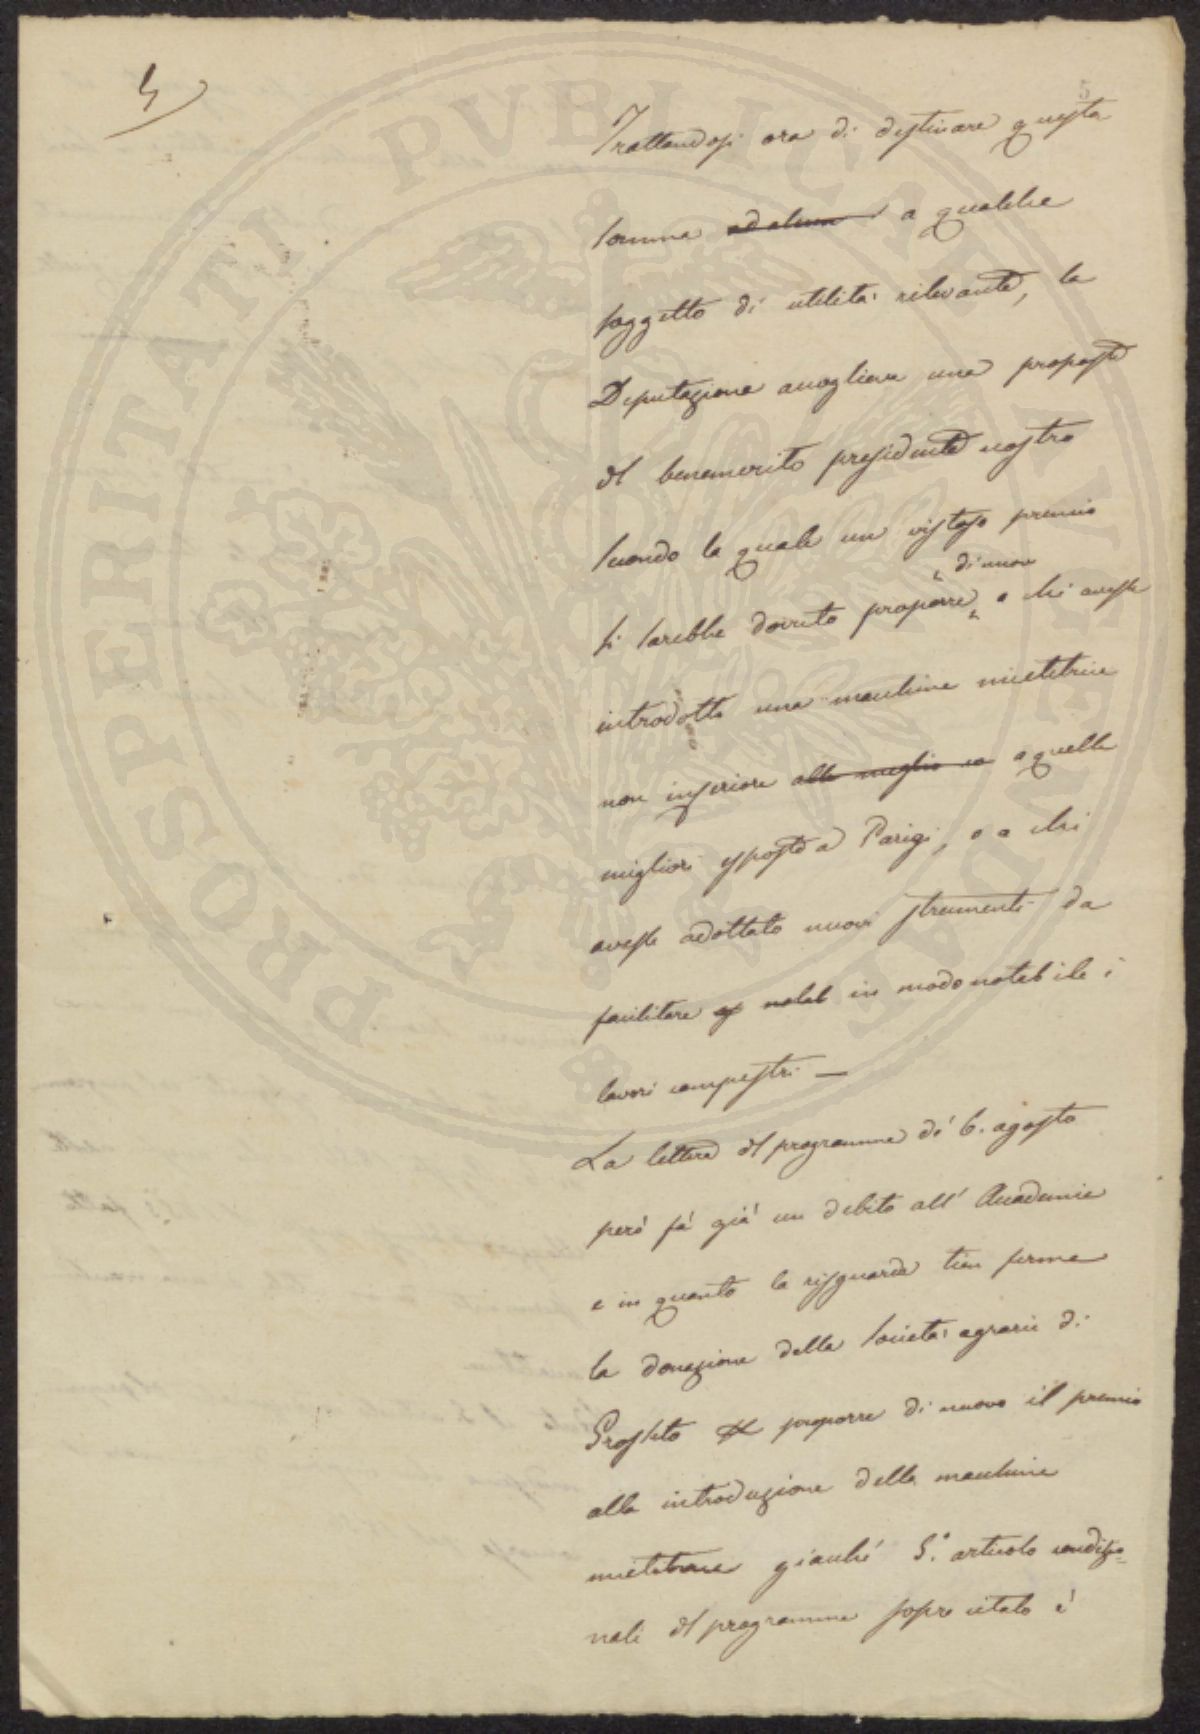 5
5
Trattandosi ora di destinare questa
somma ad alcun a qualche
soggetto di utilità rilevante, la
Deputazione accoglieva una proposta
del benemerito presidente nostro
secondo la quale un vistoso premio
di nuovo
si sarebbe dovuto proporre a chi avesse
introdotto una macchina mietitrice
non inferiore alle meglio co a quelle
migliori esposte a Parigi, o a chi
avesse adottato nuovi strumenti da
facilitare in modo notabile i
lavori campestri —
La lettera del programma di 6. agosto
però fà già un debito all' Accademia
e in quanto la risguarda tien ferma
la donazione della Società agraria di
proporre di nuovo il premio
alla introduzione della macchina
mietitrice giacchè 5.° articolo condizio=
nale del programma sopra citato è
PROSPERITATI PVBLICAE AVGENDAE